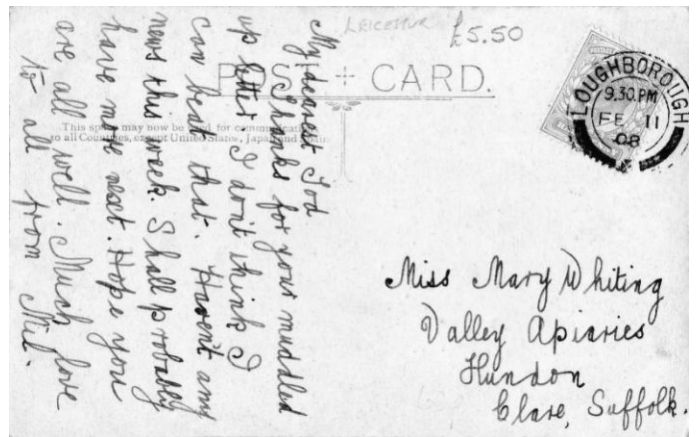 LEICESTER £5.50
POST CARD.
This space may now be used for communication
to all Countries, except United States, Japan and
LOUGHBOROUGH
9.30.PM
FE 11
08
My dearest Tod
Thanks for your muddled
up letter I don't think I
can beat that. Haven't any
news this week. Shall probably
have more next. Hope you
are all well. Much love
to all from Mil.
Miss Mary Whiting
Valley Apiaries
Hundon
Clare, Suffolk.